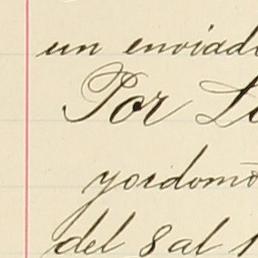 un enviado
Por L
yordomo
del 8 al 1